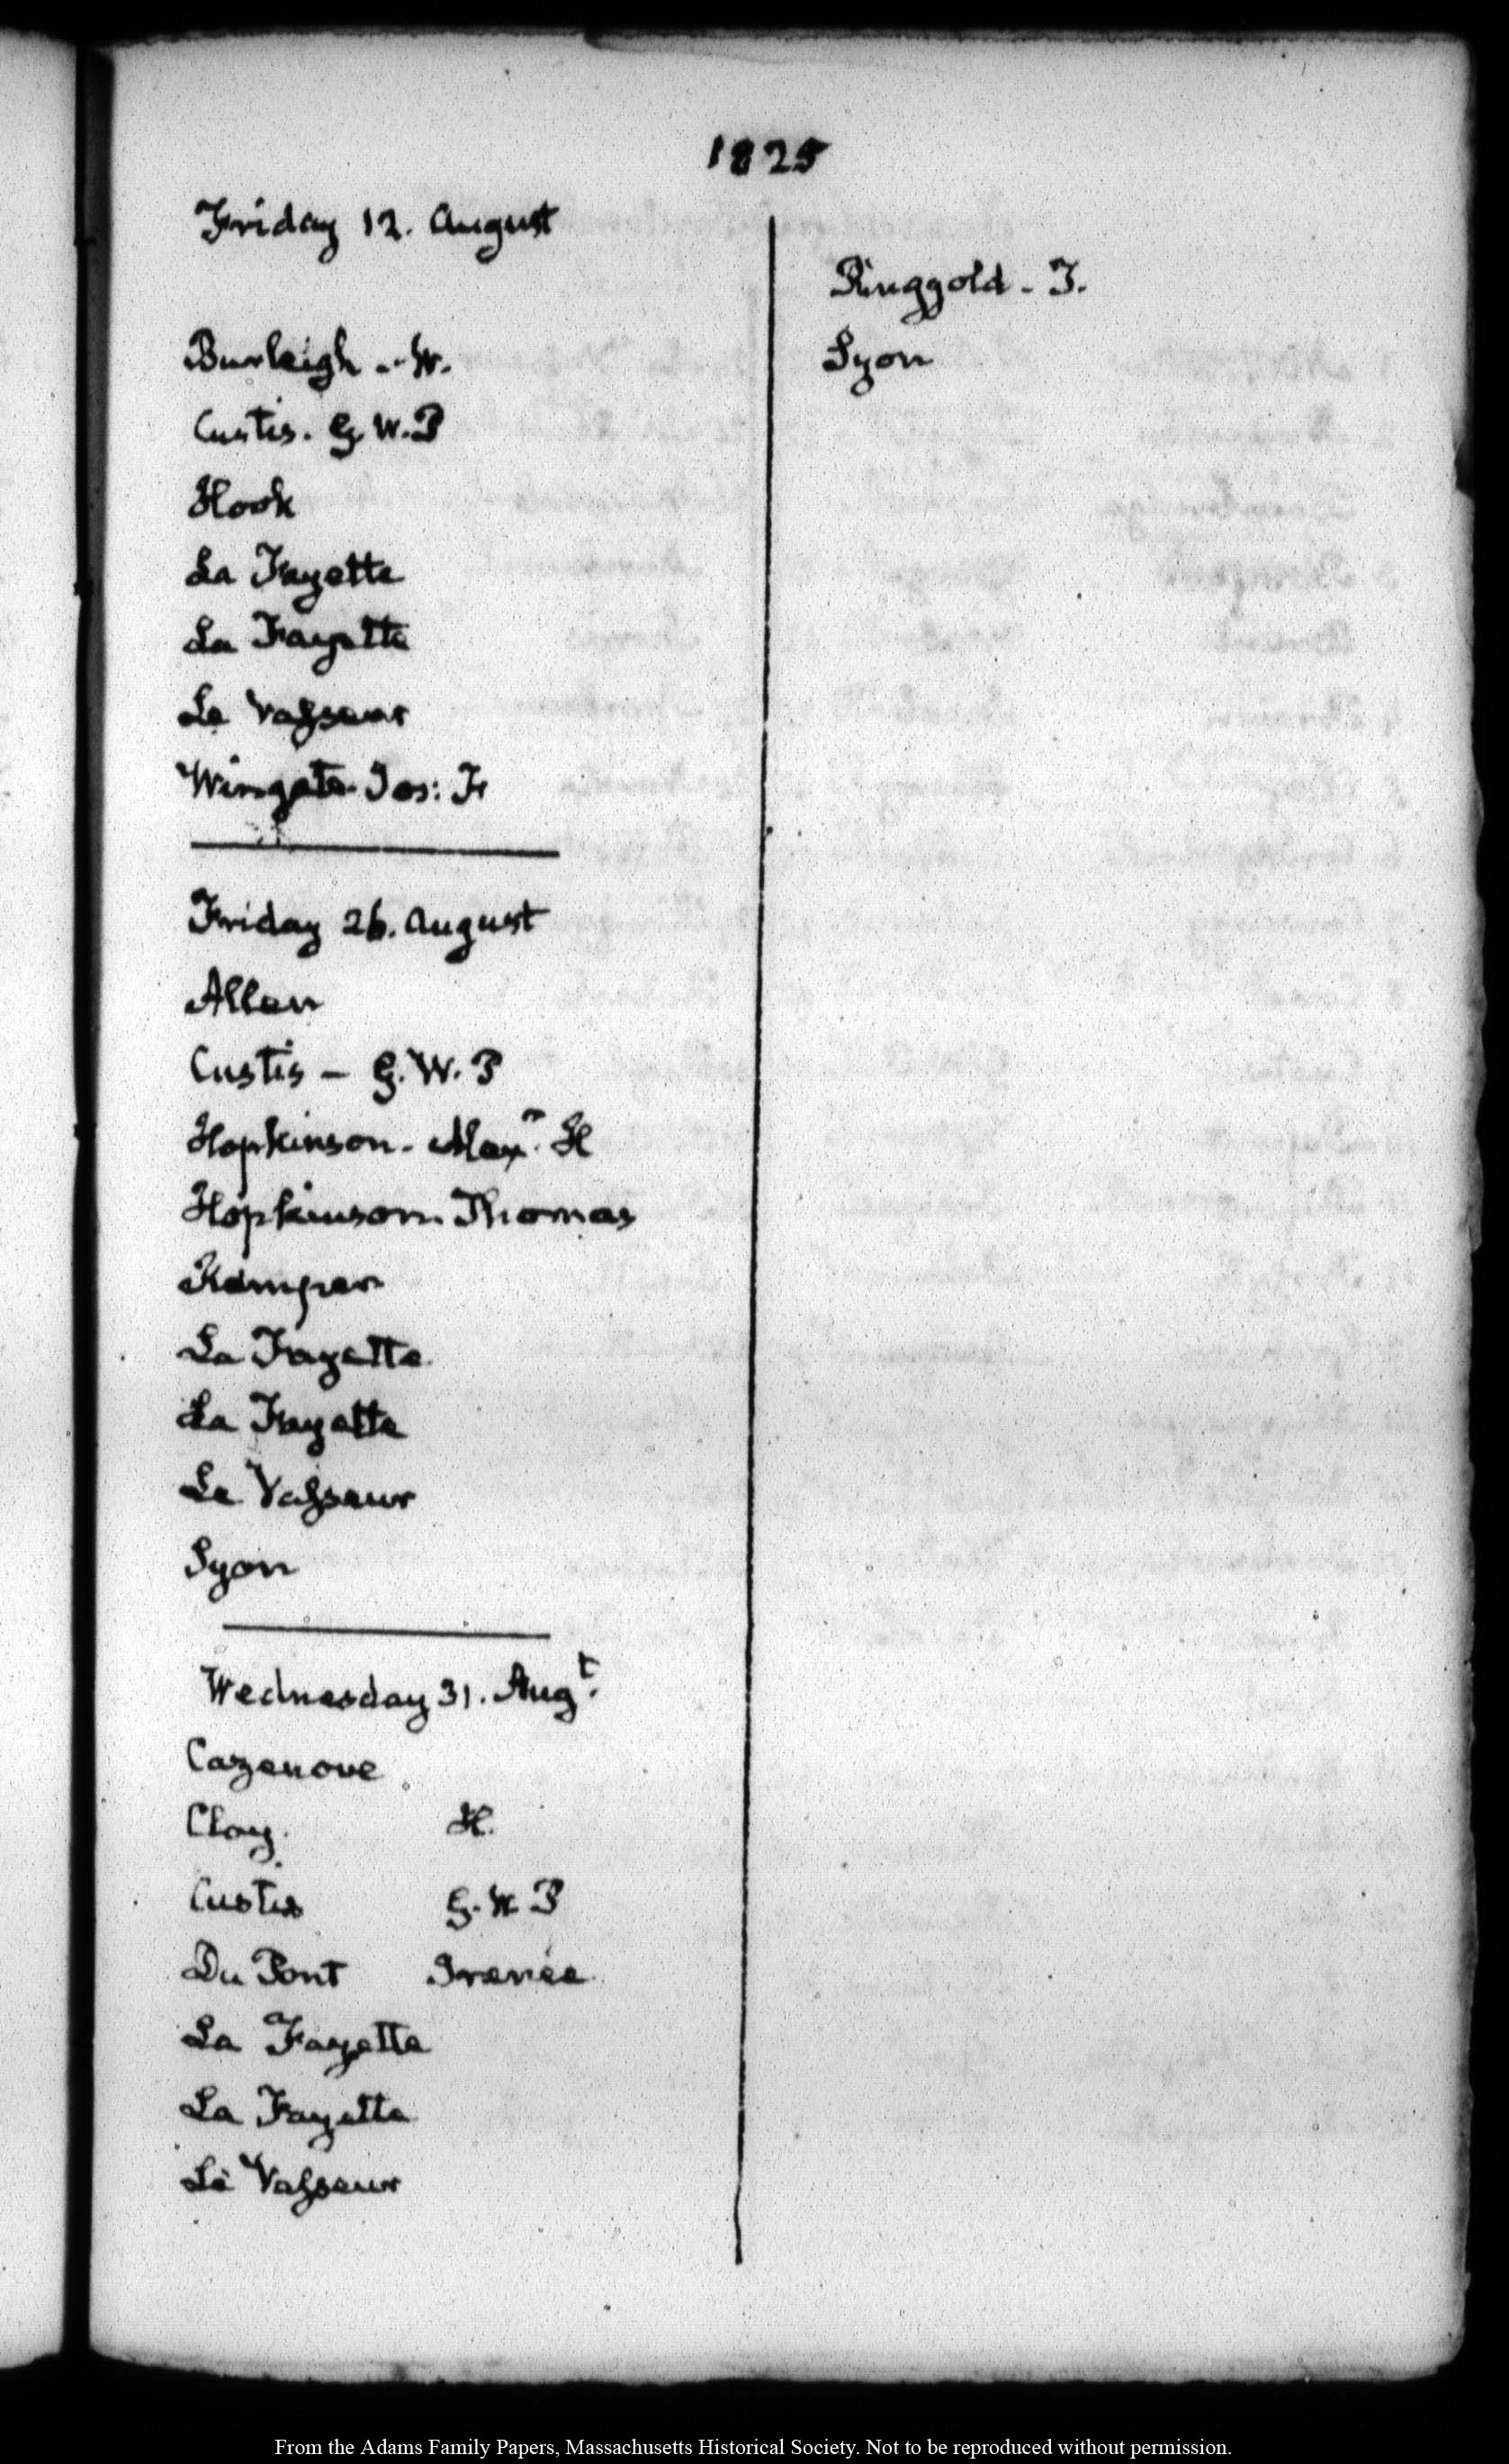 1825
Friday 12. August
Burleigh - W.
Custis. G. W. P
Hook
La Fayette
La Fayette
Le Vasseur
Wingate Jos: F
Friday 26. August
Allen
Custis - G. W. P
Hopkinson. Alexr. H
Hopkinson. Thomas
Kemper
La Fayette
La Fayette
Le Vasseur
Syon
Wednesday 31. Augt.
Cazenove
Clay. H.
Custis G. W. P
Du Pont Irénée
La Fayette
La Fayette
Le Vasseur
Ringgold - T.
Syon
From the Adams Family Papers, Massachusetts Historical Society. Not to be reproduced without permission.